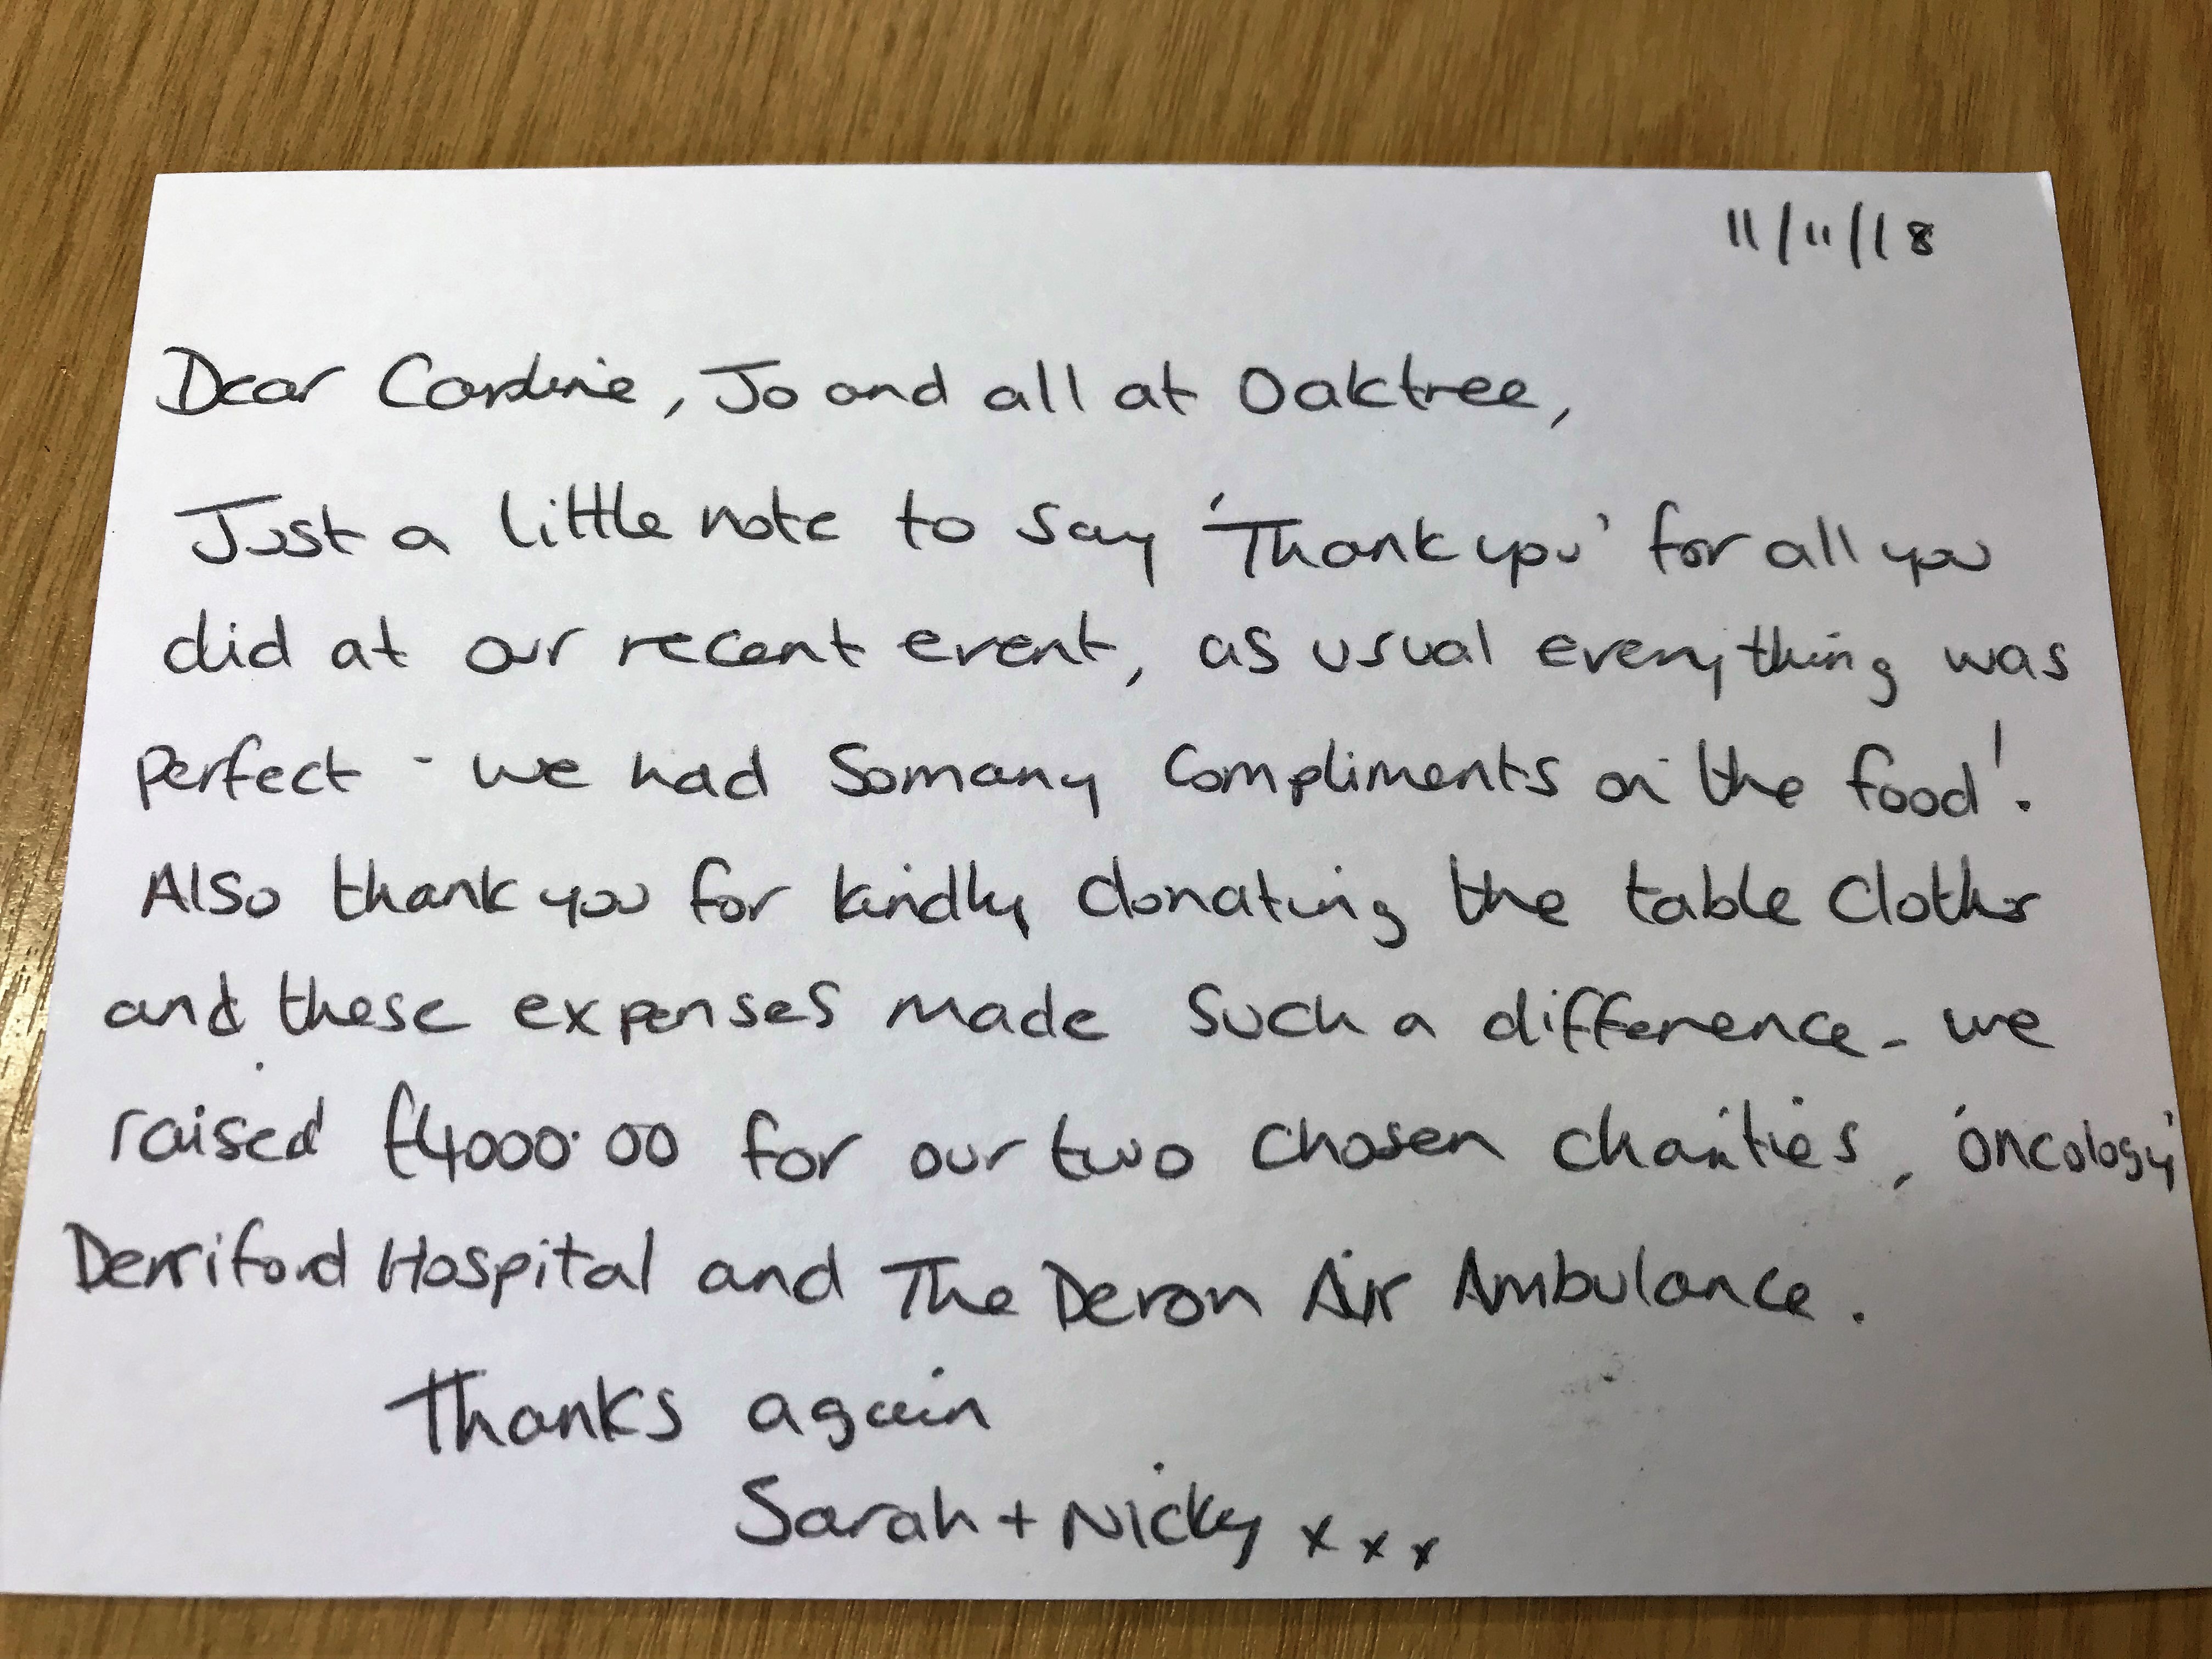 11/11/18
Dear Caroline, Jo and all at Oaktree,
Just a little note to say 'Thank you' for all you
did at our recent event, as usual everything was
perfect - we had so many compliments on the food!
Also thank you for kindly donating the table cloths
and these expenses made such a difference - we
raised £4000.00 for our two chosen charities, 'oncology'
Derriford Hospital and The Devon Air Ambulance.
Thanks again
Sarah + Nicky x x x